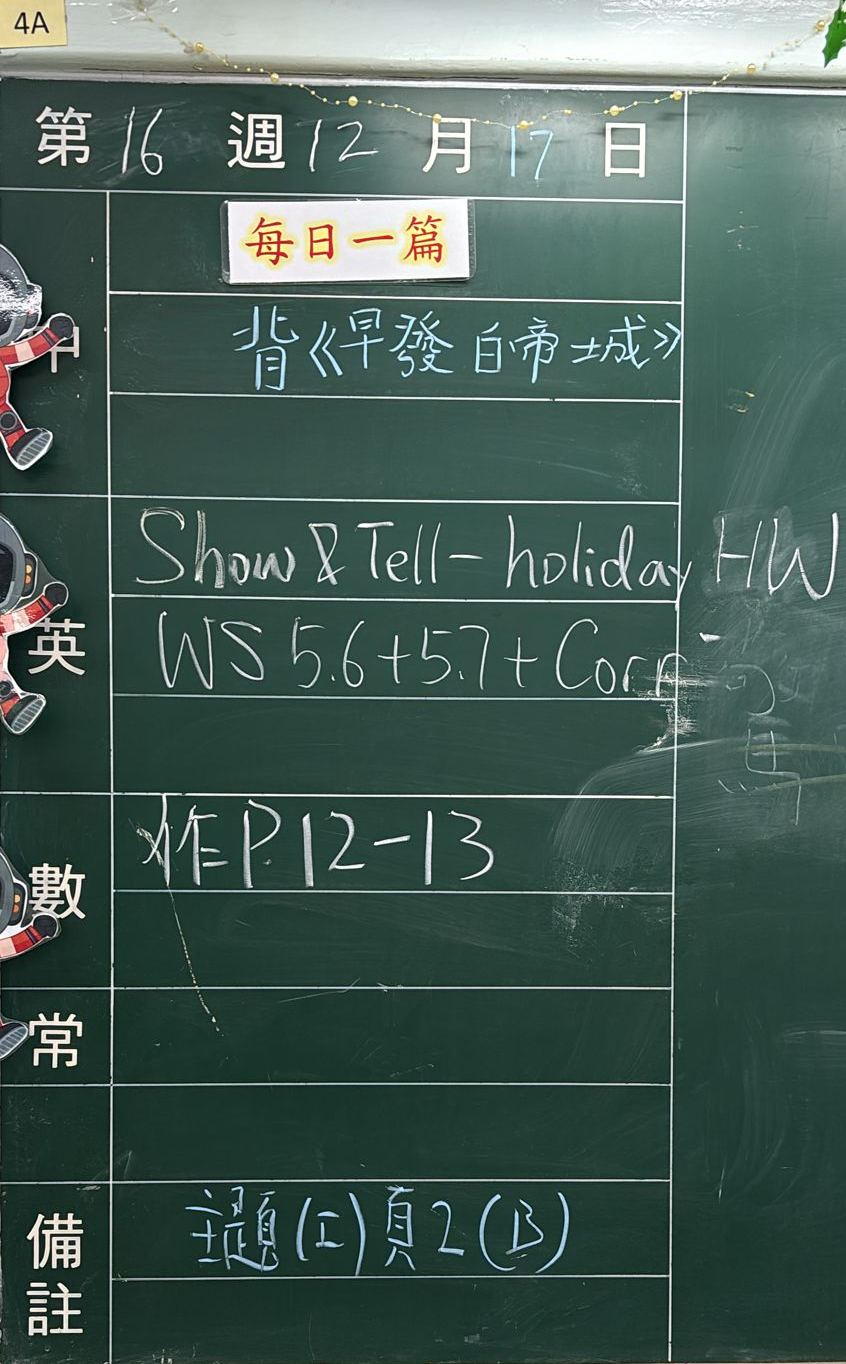 4A
第 16 週 12 月 17 日
每日一篇
中
背《早發白帝城》
Show & Tell - holiday HW
英
WS 5.6+5.7+ Corr
數
作P.12-13
常
備註
主題(工)頁2(B)